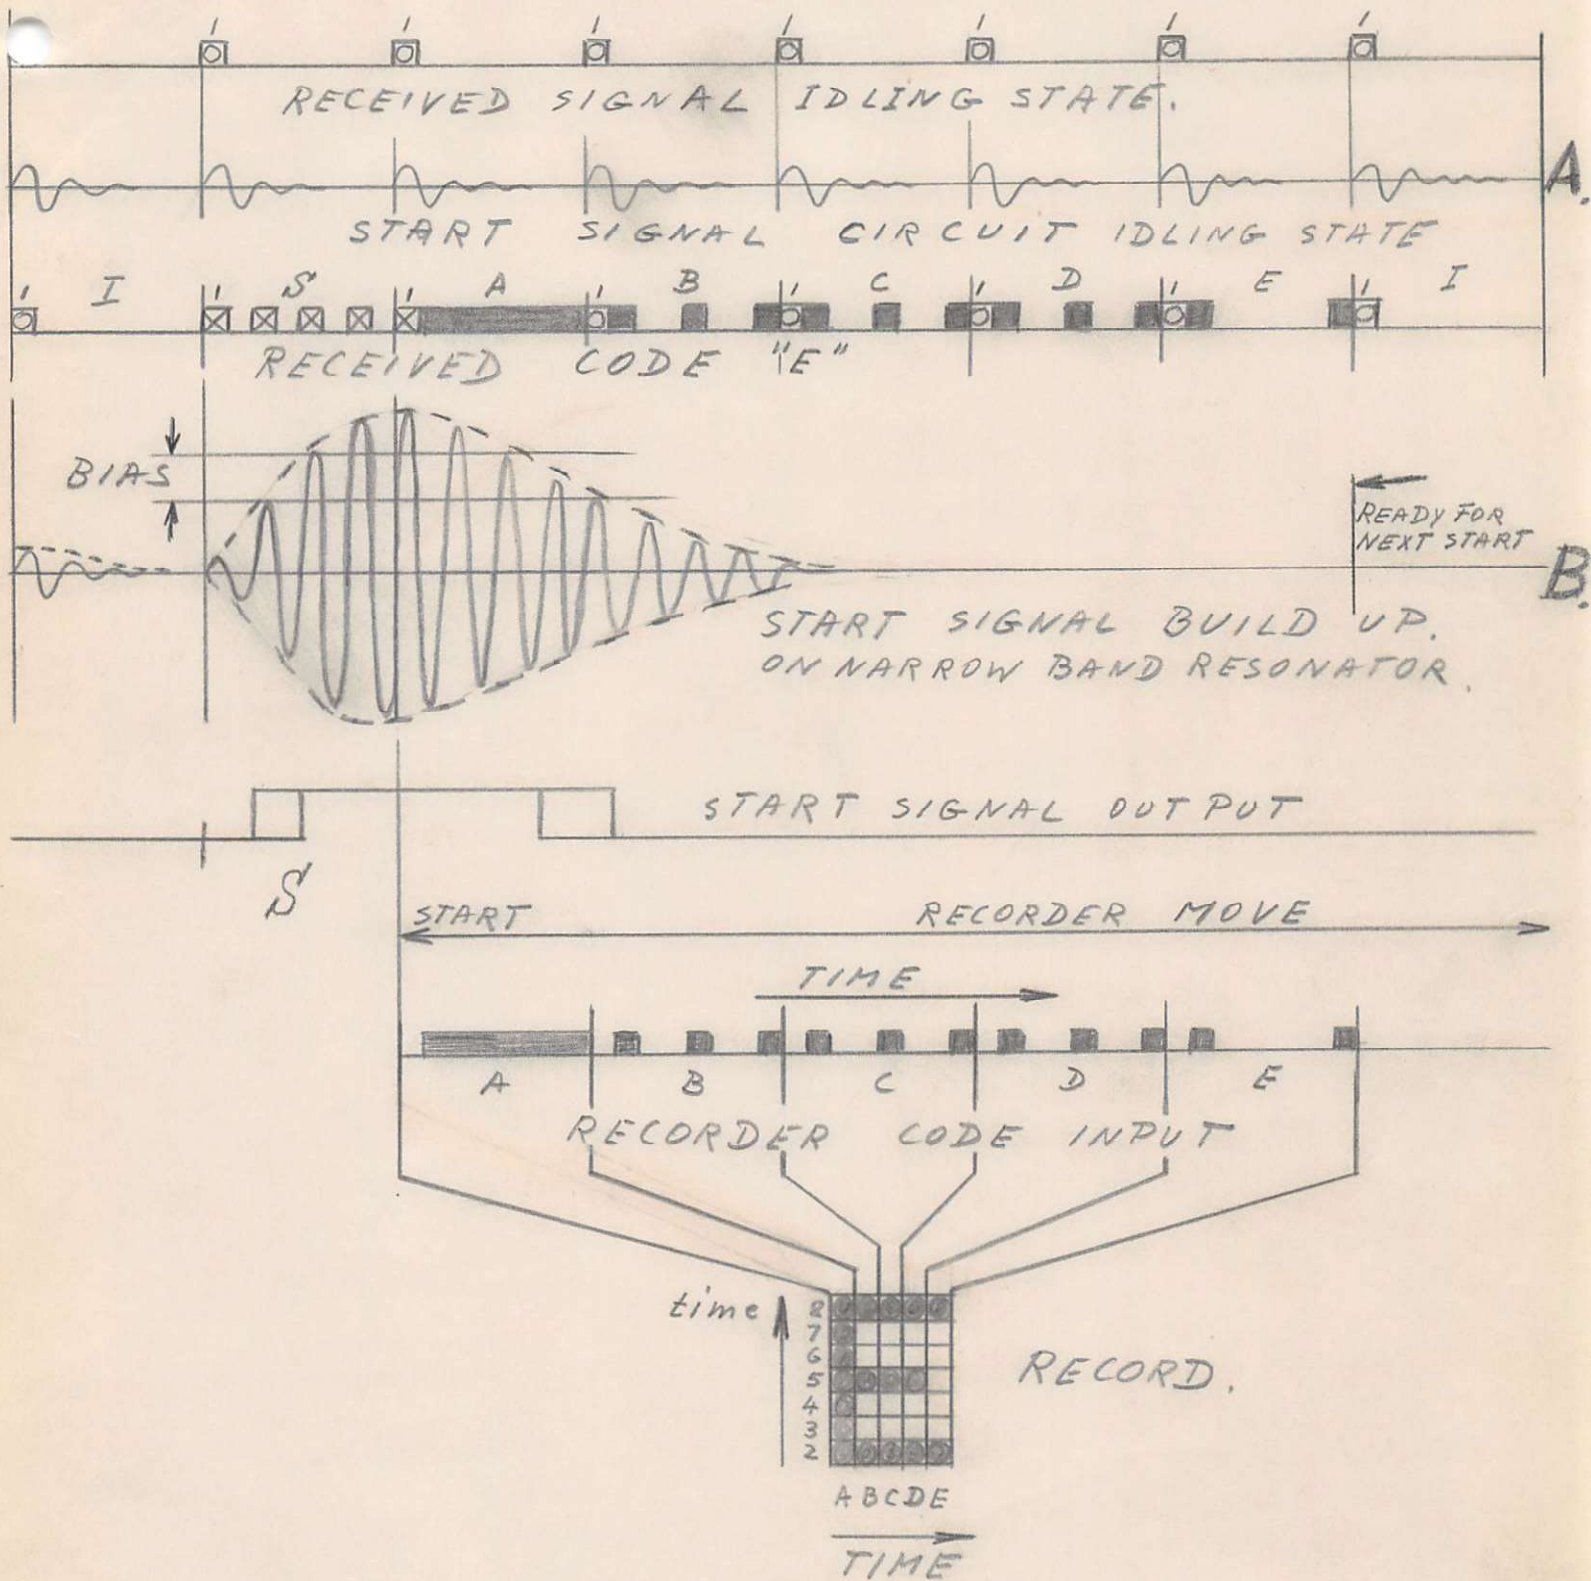 1 1 1 1 1 1 1
RECEIVED SIGNAL IDLING STATE.
A.
START SIGNAL CIRCUIT IDLING STATE
I S A B C D E I
1 1 1 1 1 1 1 1
RECEIVED CODE "E"
BIAS
READY FOR
NEXT START
B.
START SIGNAL BUILD UP.
ON NARROW BAND RESONATOR.
START SIGNAL OUTPUT
S
START RECORDER MOVE
TIME
A B C D E
RECORDER CODE INPUT
time
8
7
6
5
4
3
2
RECORD.
A B C D E
TIME